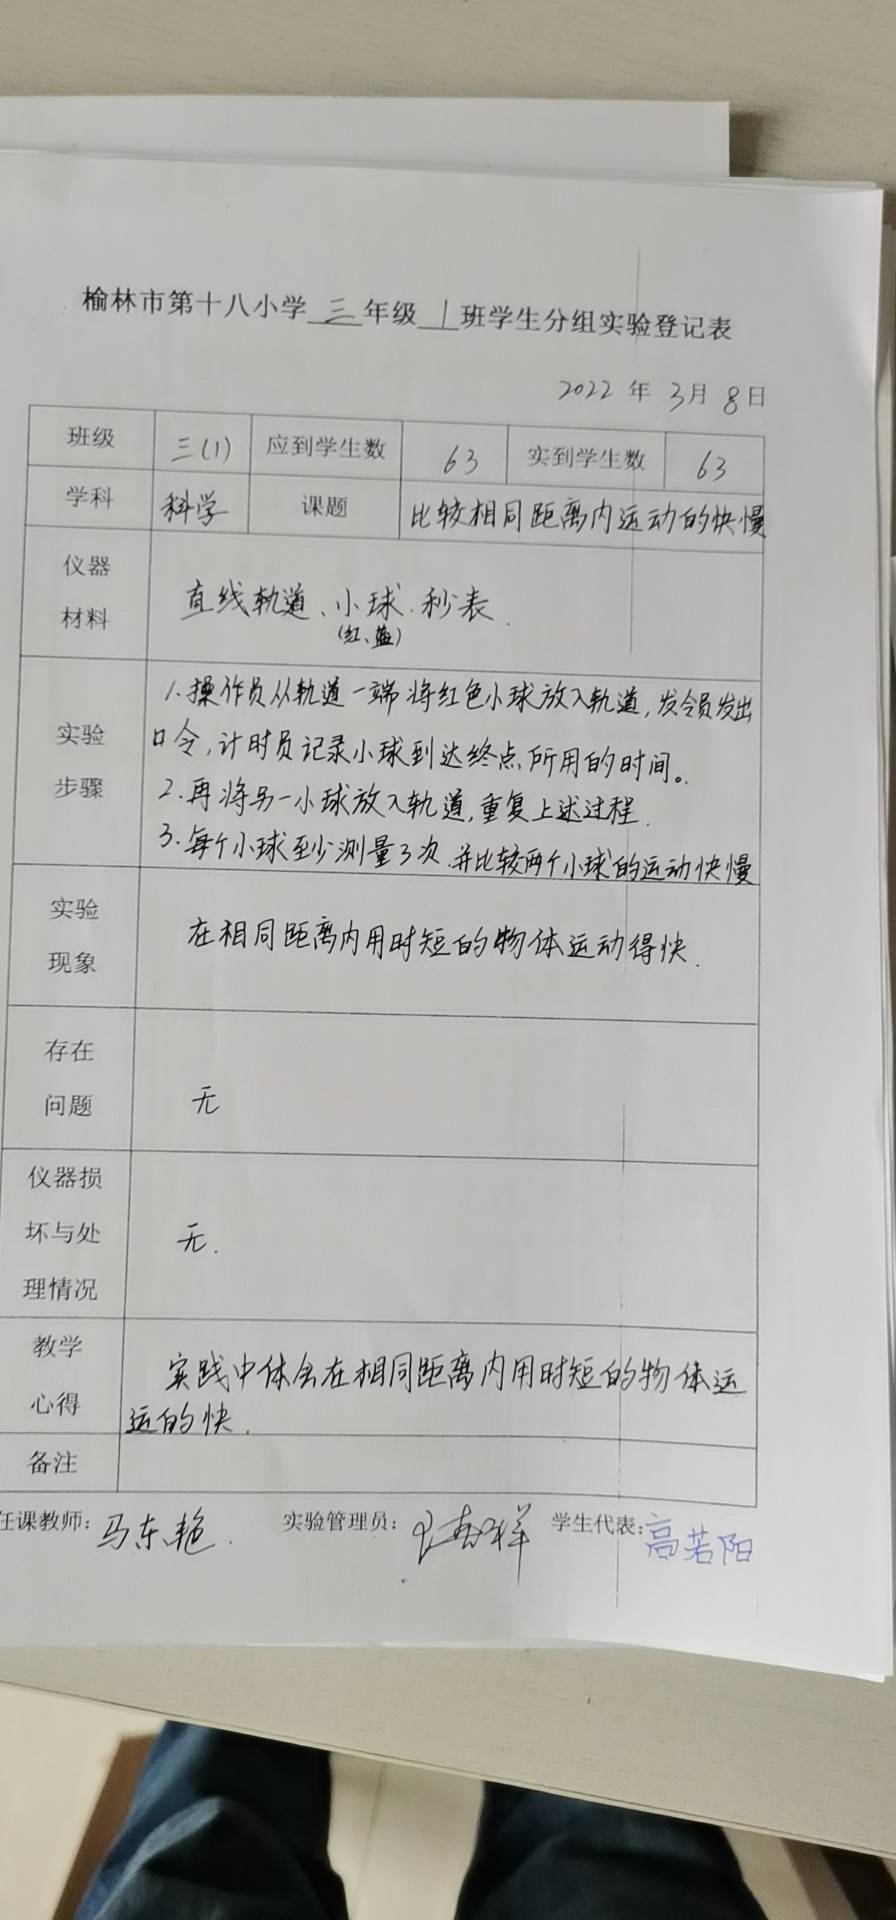 榆林市第十八小学 三 年级 1 班学生分组实验登记表
2022 年 3月 8日
班级 三(1) 应到学生数 63 实到学生数 63
学科 科学 课题 比较相同距离内运动的快慢
仪器
材料
直线轨道、小球、秒表.
(红、蓝)
实验
步骤
1.操作员从轨道一端将红色小球放入轨道,发令员发出
口令,计时员记录小球到达终点所用的时间。
2.再将另一小球放入轨道,重复上述过程.
3.每个小球至少测量3次.并比较两个小球的运动快慢
实验
现象
在相同距离内用时短的物体运动得快.
存在
问题
无
仪器损
坏与处
理情况
无.
教学
心得
实践中体会在相同距离内用时短的物体运
运的快.
备注
任课教师: 马东艳. 实验管理员: 学生代表: 高若阳